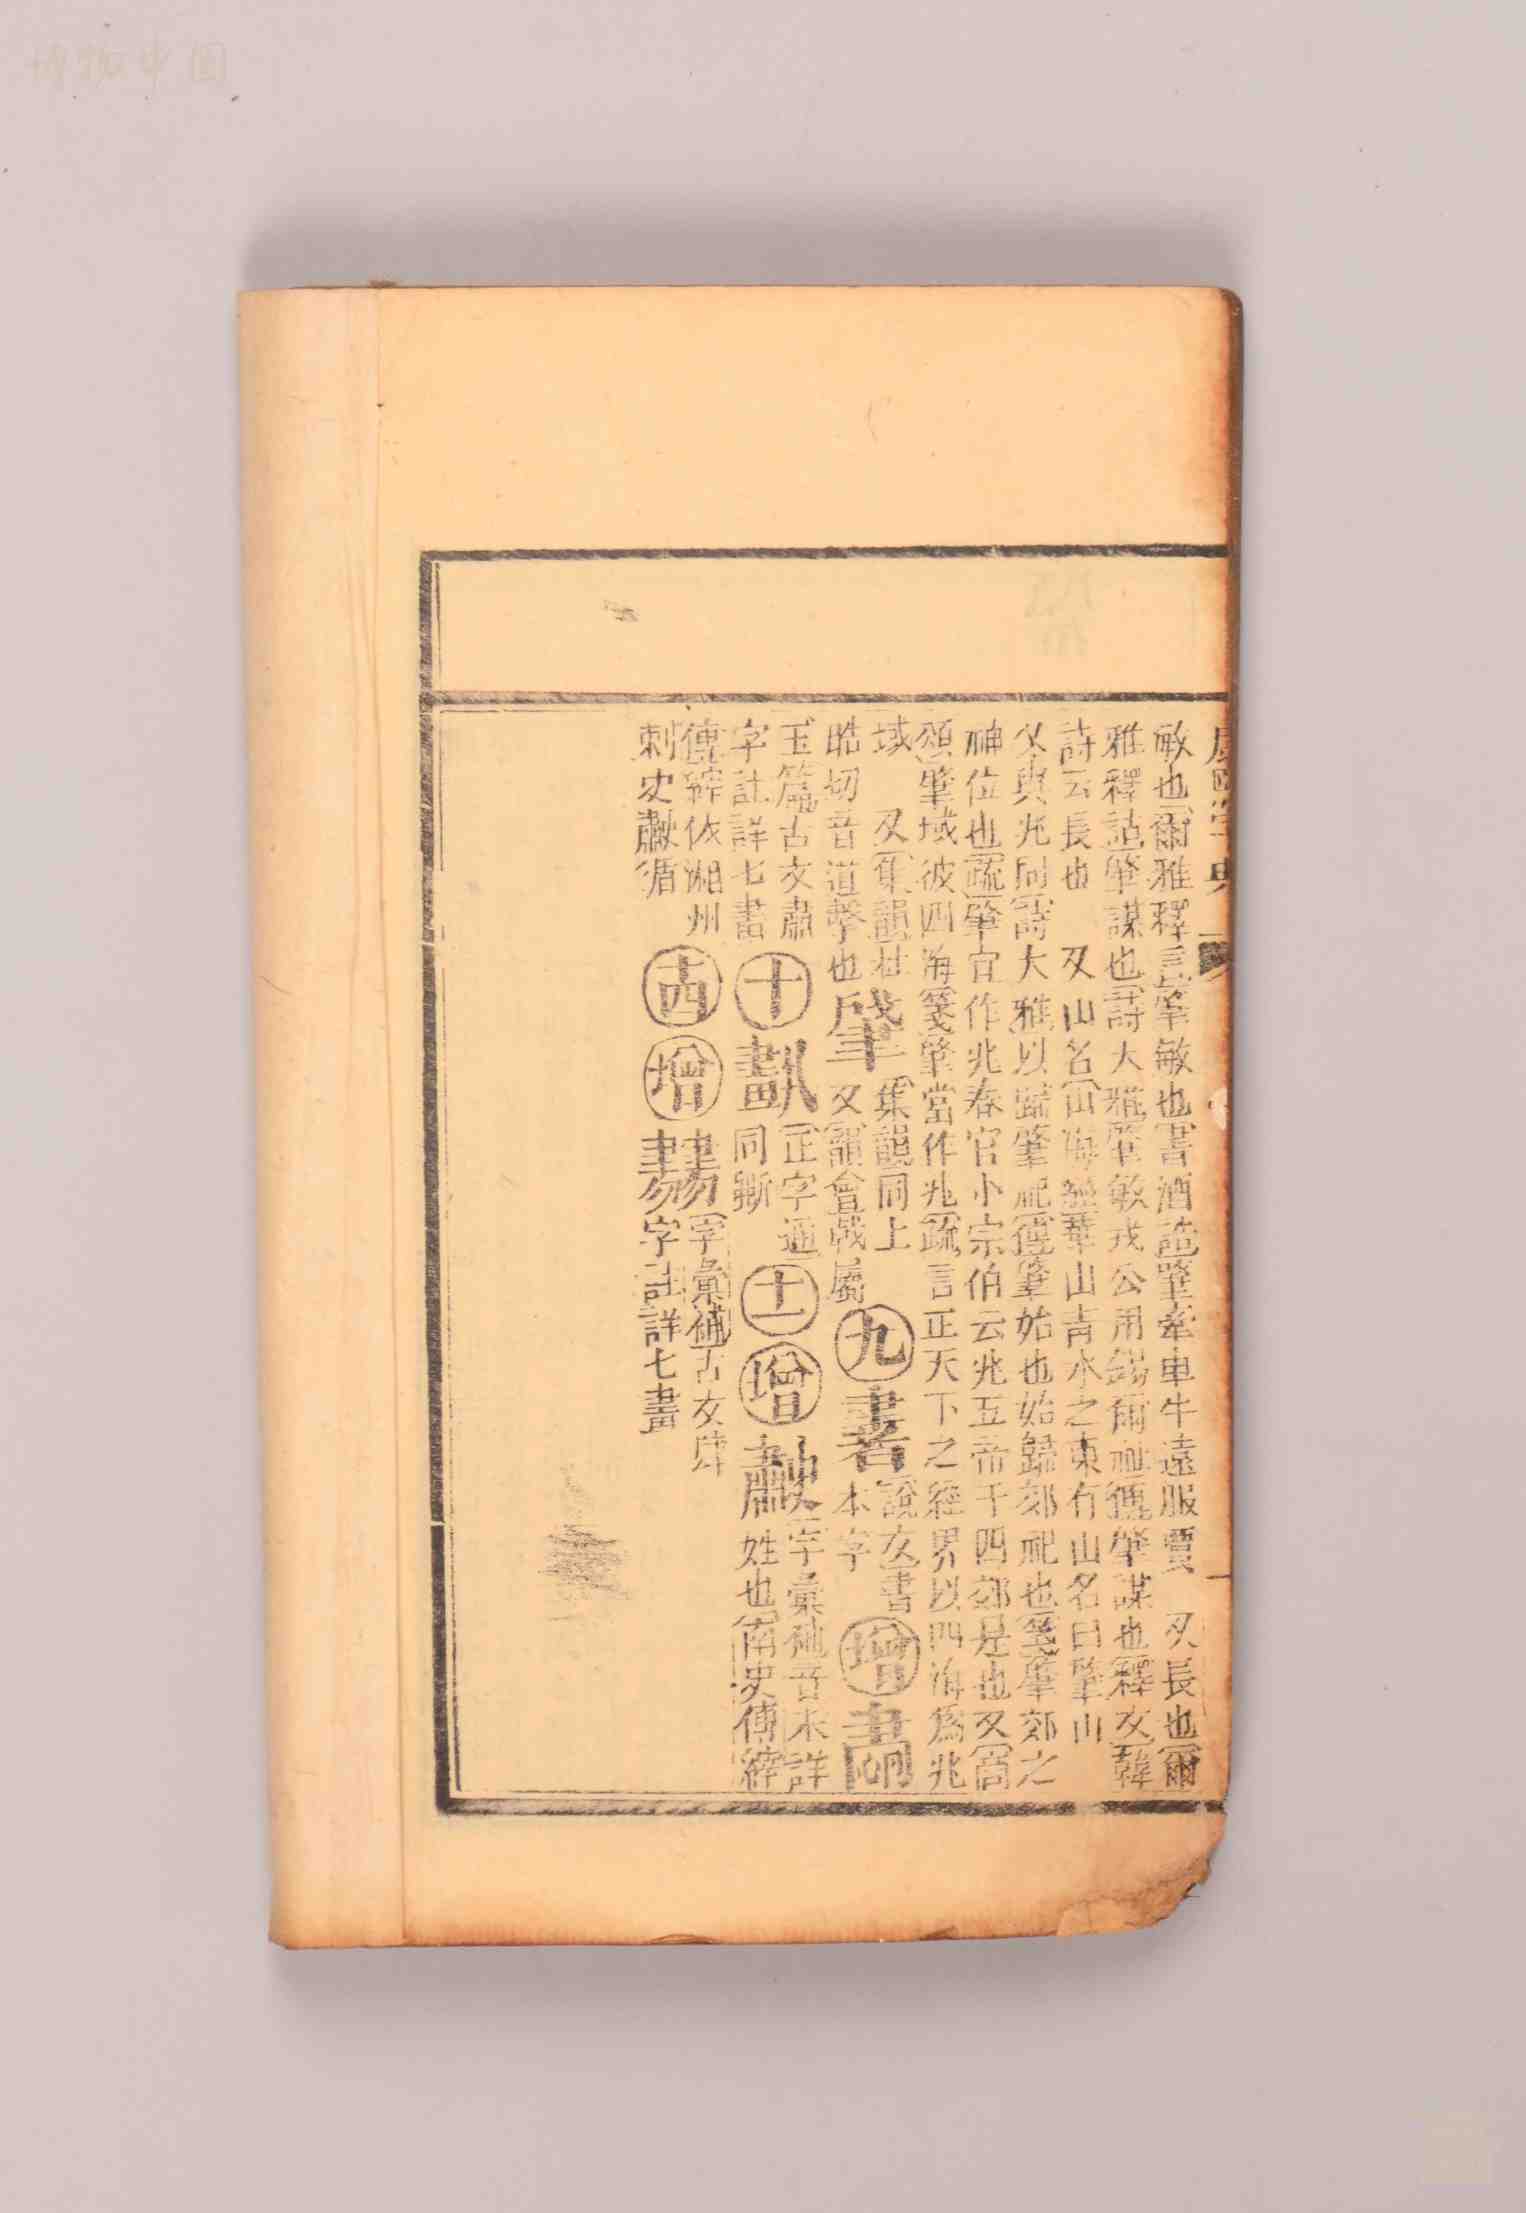 博物中國
康熙字典
敏也爾雅釋言肇敏也書酒誥肇牽車牛遠服賈 又長也爾
雅釋詁肇謀也詩大雅肇敏戎公用錫爾祉傳肇謀也釋文韓
詩云長也 又山名山海經華山青水之東有山名曰肇山
又與兆同詩大雅以歸肇祀傳肇始也始歸郊祀也箋肇郊之
神位也疏肇宜作兆春官小宗伯云兆五帝于四郊是也又商
頌肇域彼四海箋肇當作兆疏言正天下之經界以四海為兆
域 又集韻杜
晧切音道擊也
肈
集韻同上
又韻會戟屬
九
書
說文書
本字
增
玉篇古文肅
字註詳七畫
十
劃
正字通
同斷
十一
增
字彙補音未詳
姓也南史傅縡
傳縡依湘州
刺史 循
十四
增
字彙補古文肆
字註詳七畫